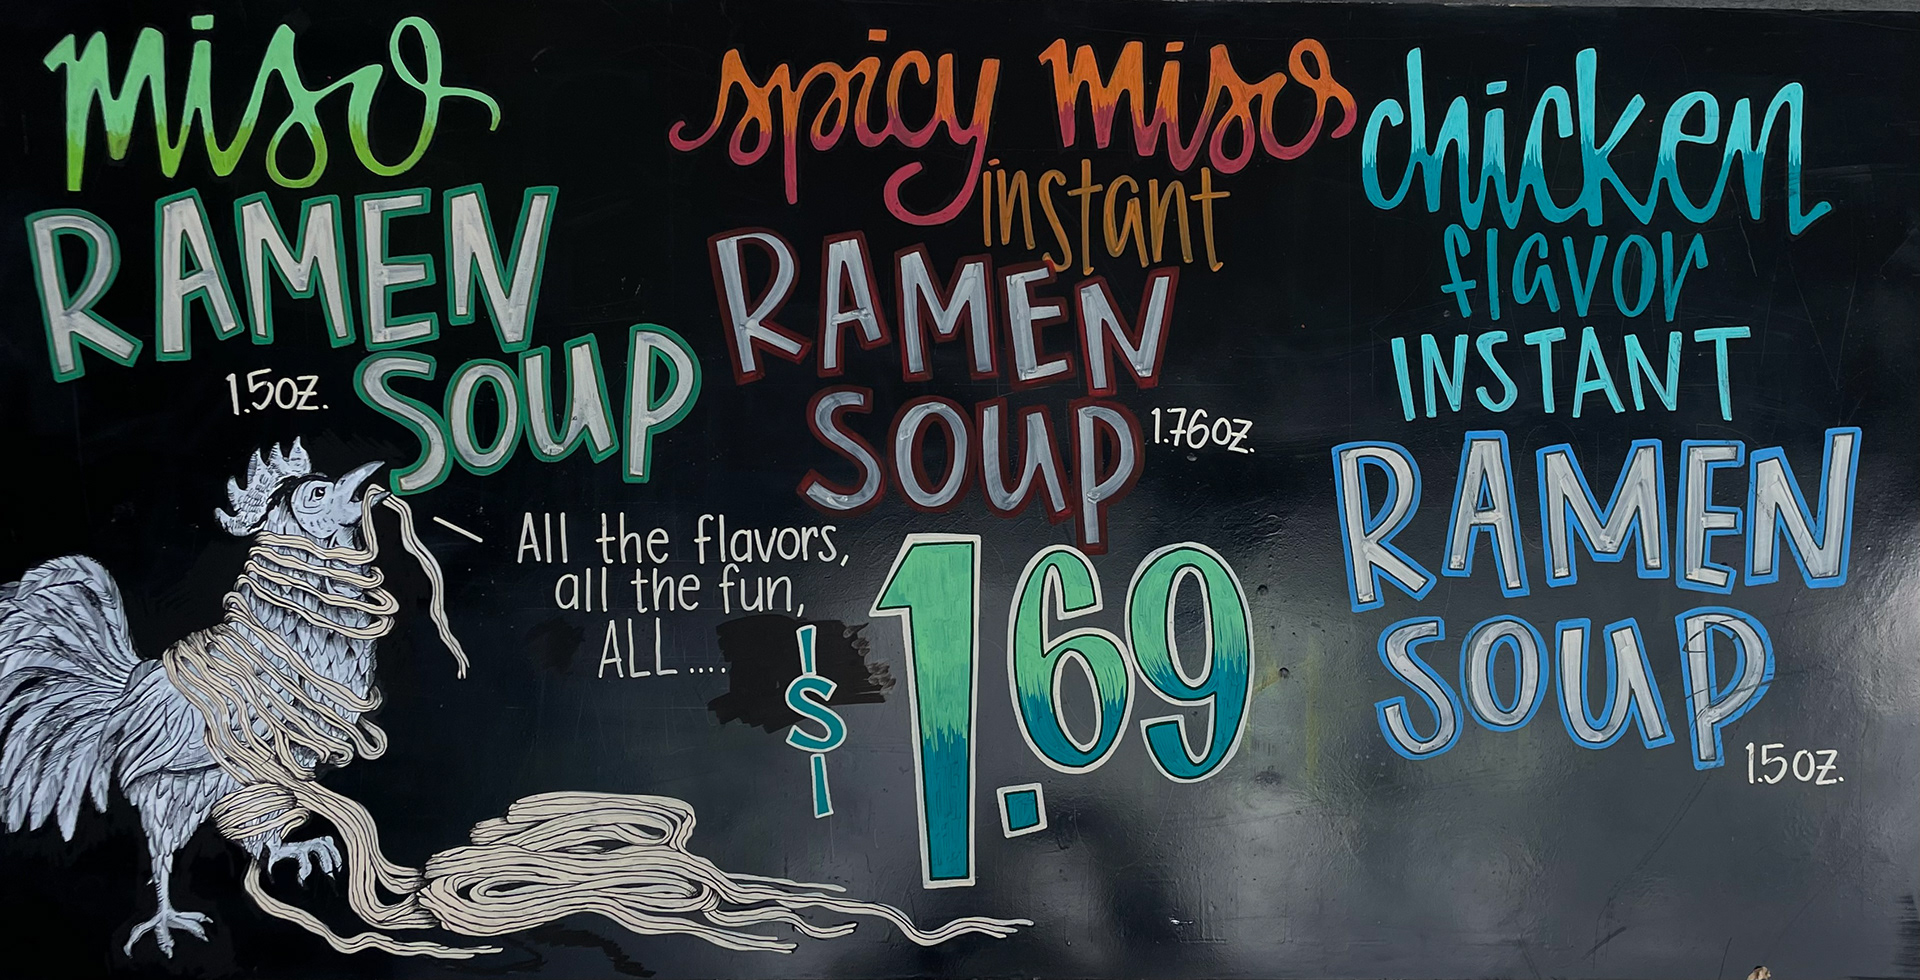 miso
RAMEN
SOUP
1.5oz.
spicy miso
instant
RAMEN
SOUP
1.76oz.
chicken
flavor
INSTANT
RAMEN
SOUP
1.5oz.
All the flavors,
all the fun,
ALL....
$1.69